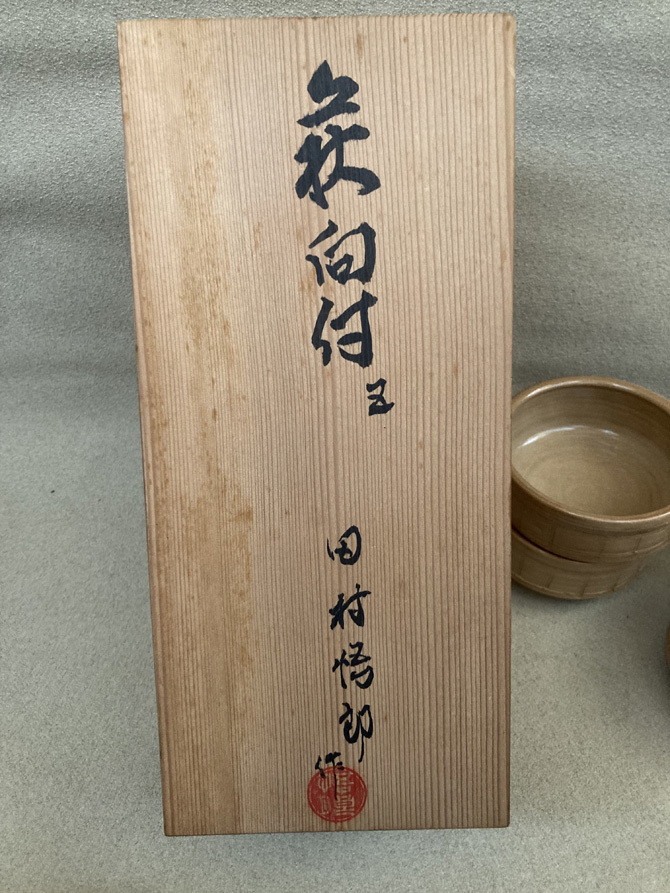 萩向付
五
田村悟郎
作